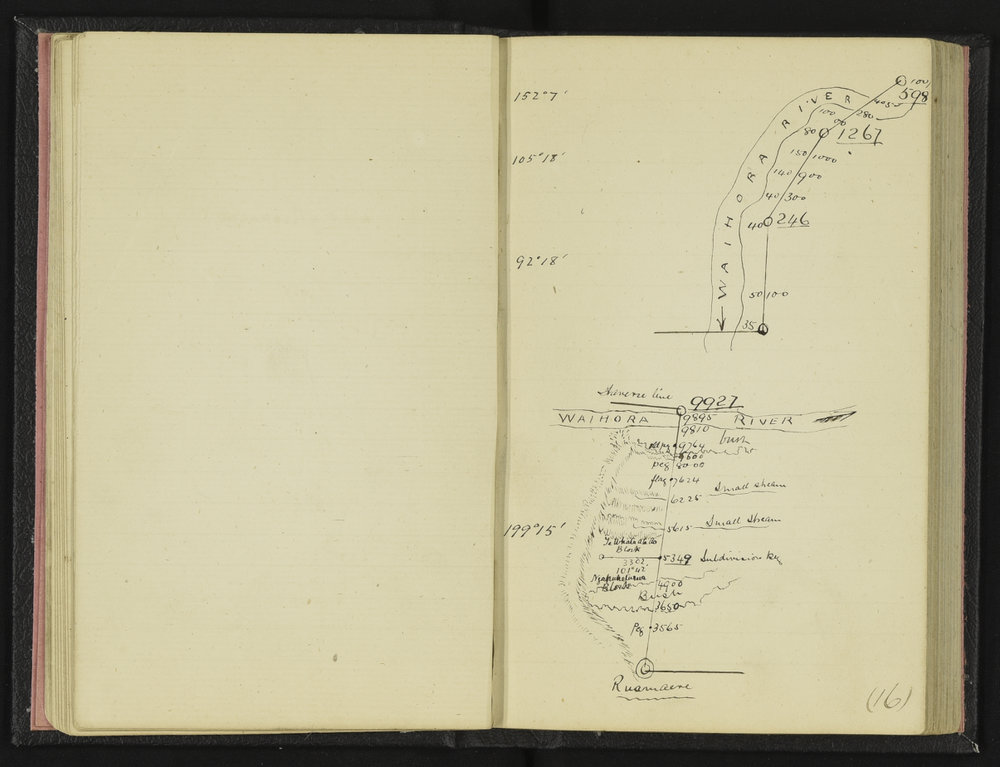 152°7'
100
598
405
WAIHORA RIVER
100 280
00
80 1267
105°18'
150 1000
140 900
40 300
40 246
92°18'
50 100
35
Traverse line 9927
WAIHORA 9895 RIVER
9810
bush
flag 9764
9600
peg 8000
flag 7624
6225 Small stream
199°15'
5615 Small Stream
Block
5349 Subdivision Peg
3322
101°42
Block
4900
Bush
3650
Peg 3565
Ruamaere
(16)